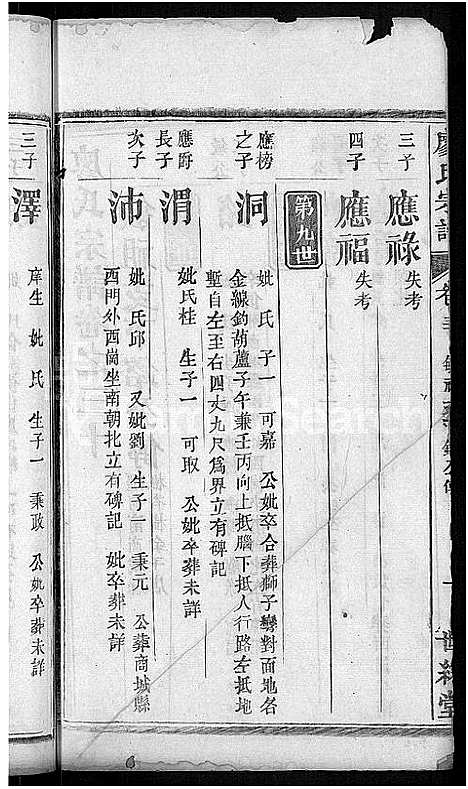 廖氏宗譜
卷三
世綵堂
三子 應祿 失考
四子 應福 失考
第九世
應榜之子 洞 妣氏 子一 可嘉 公妣卒合葬獅子巒對面地名
金線釣葫蘆子午兼壬丙向上抵腦下抵人行路左抵地
塹自左至右四丈九尺爲界立有碑記
應爵長子 渭 妣氏桂 生子一 可取 公妣卒葬未詳
次子 沛 妣氏邱 又妣劉 生子一 秉元 公葬商城縣
西門外西崗坐南朝北立有碑記 妣卒葬未詳
三子 澤 庠生 妣氏 生子一 秉政 公妣卒葬未詳